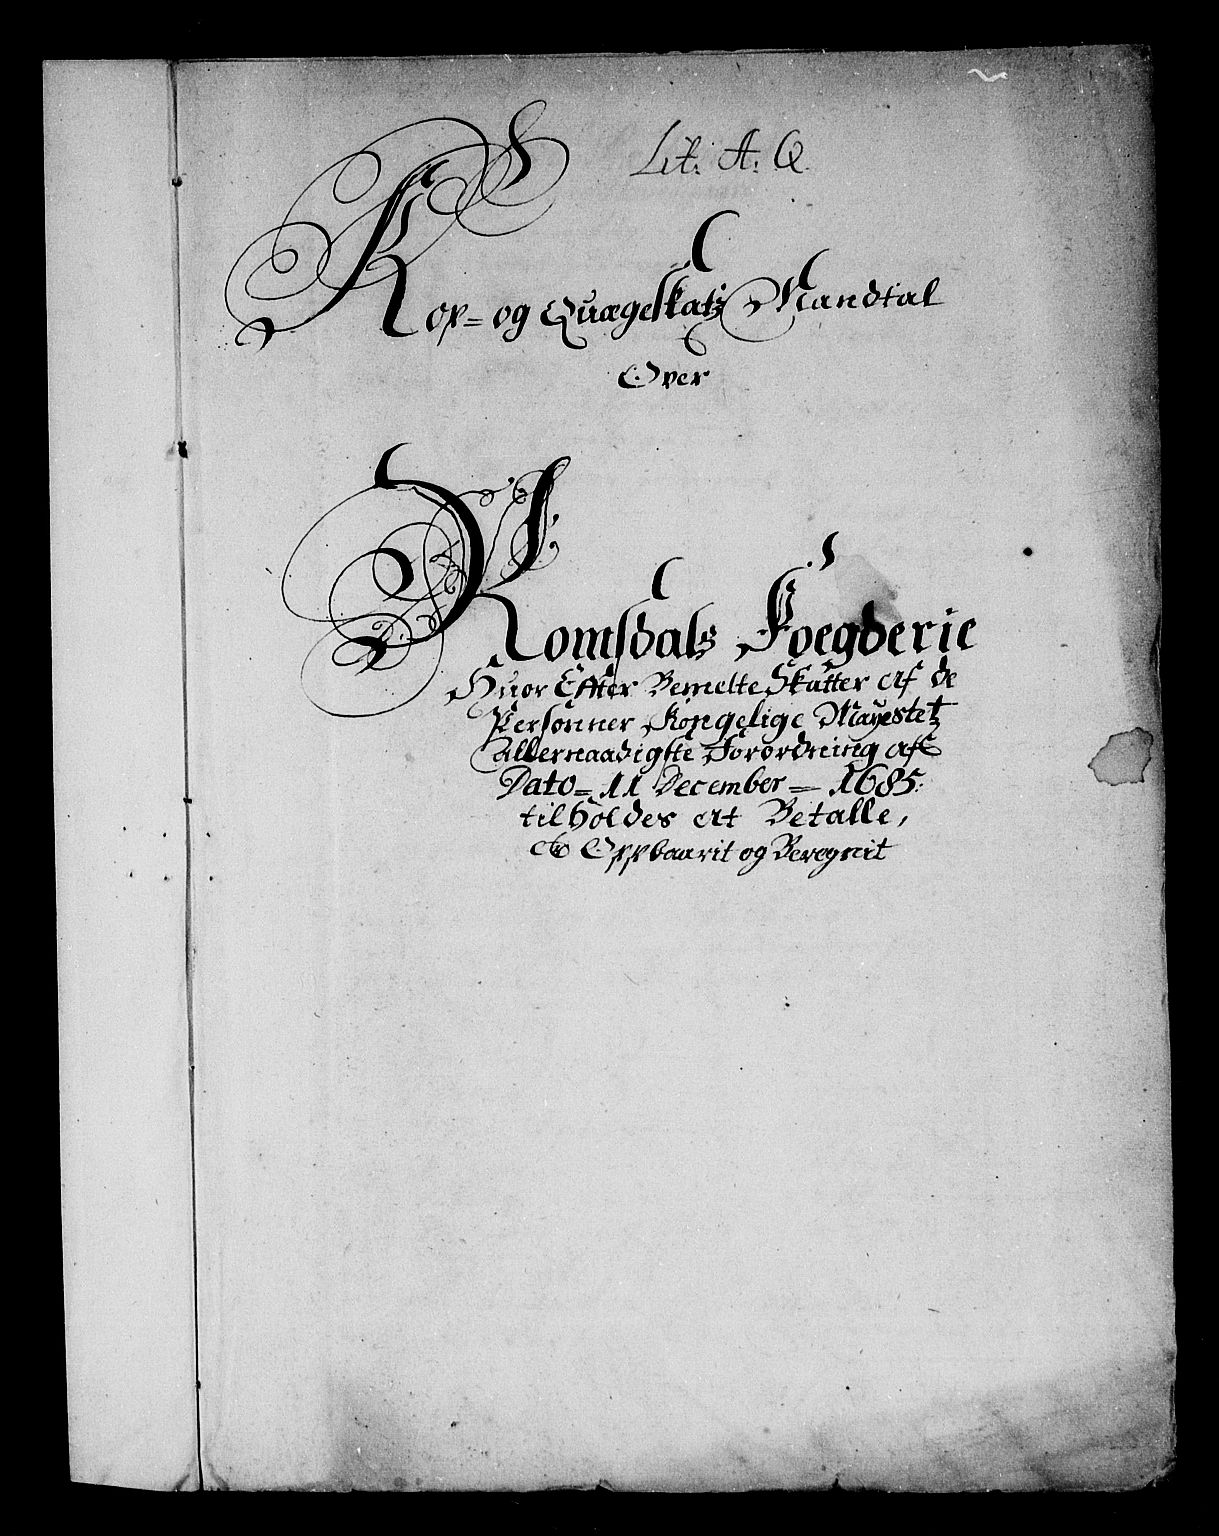 Lit: A: Q.
Kop= og Quægeskatz Mandtal
Over
Romsdals Foegderie
Huor Effter Bemelte Skatter af de
Personner Kongelige Mayestetz
Allernaadigste Forordning af
Dato= 11 December = 1685:
tilholdes at Betalle,
Oppbaarit og Beregnit